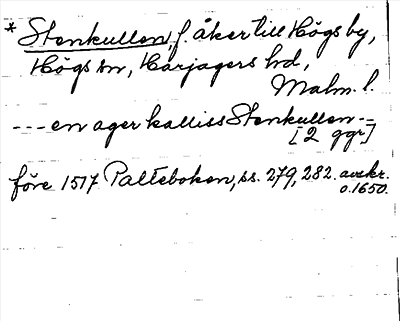 * Stenkullen, f. åker till Högs by,
Högs sn, Harjagers hd,
Malm. l.
--- en ager kalliss Stenkullen --
[2 ggr]
före 1517 Palteboken, ss. 279, 282. avskr.
o. 1650.